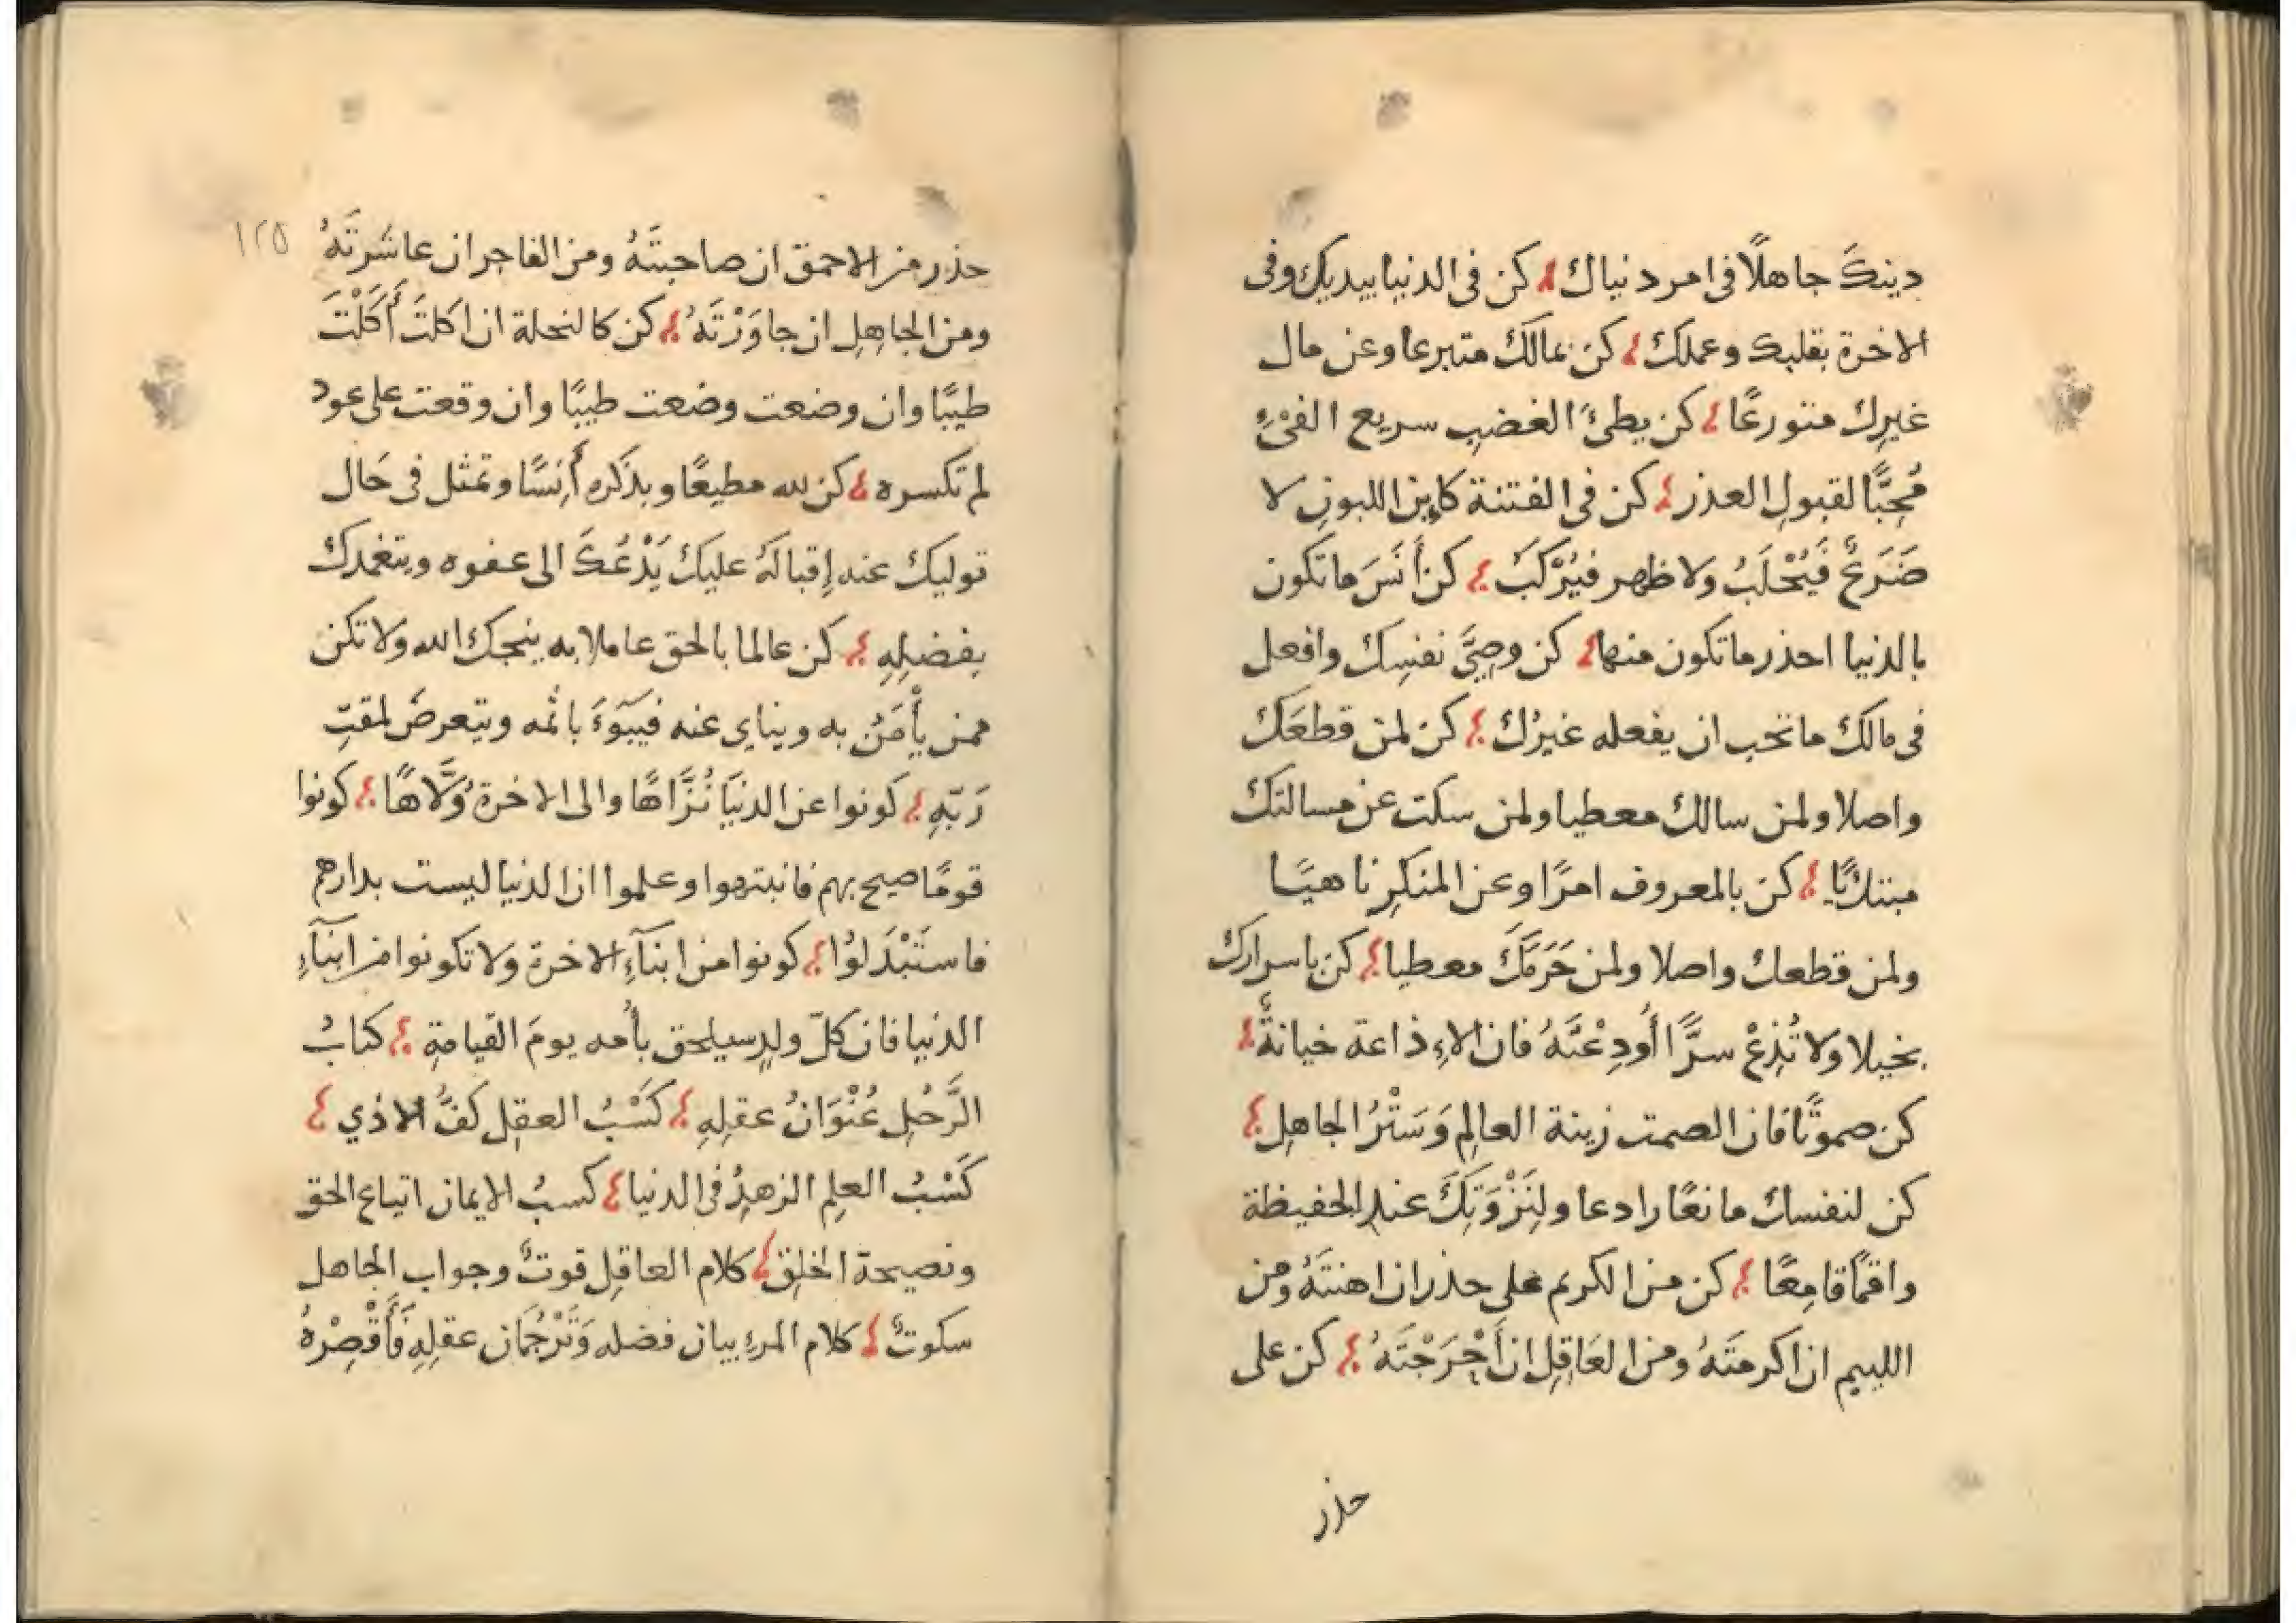 دينكَ جاهلًا في امر دنياك كن في الدنيا ببديك وفي
الاخرة بقلبك وعملك كن بمالك متبرعا وعن مال
غيرك متورعًا كن بطئ الغضبِ سريع الفئِ
مُحِبًّا لقبولِ العذر كن في الفتنة كابن اللبونِ لا
ضَرَعٌ فَيُحْلَبُ ولا ظهر فيُرْكَبَ كن أَنَسَ ما تكون
بالدنيا احذر ما تكون منها كن وصِيَّ نفسِك وافعل
في مالك ما تحب ان يفعله غيرُك كن لمن قطعَك
واصلا ولمن سالك معطيا ولمن سكت عن مسالتك
مبتديًا كن بالمعروف امرًا وعن المنكرِ ناهيًا
ولمن قطعك واصلا ولمن حَرَمَكَ معطيا كن باسرارك
بخيلا ولا تُذِعْ سرًّا أُودِعْتَهُ فان الاِذاعة خيانةٌ
كن صموتًا فان الصمت زينة العالِم وَسَتْرُ الجاهِلِ
كن لنفسك مانعًا رادعا ولِنَزْوَتِكَ عند الحفيظة
واقمًا قامِعًا كن من الكريم على حذر ان اهنتَهُ ومن
اللييم ان اكرمتَهُ ومن العَاقِلِ ان أَحْرَجْتَهُ كن على
حذر
١٢٥
حذر من الاحمق ان صاحبتَهُ ومن الفاجر ان عاشَرتَهُ
ومن الجاهِلِ ان جاوَرْتَهُ كن كالنحلة ان اكلتَ أَكَلْتَ
طيبًا وان وضعت وضعت طيبًا وان وقعت على عود
لم تكسره كن لله مطيعًا وبذكره أَنِسًا وتمثل في حَال
توليك عنه إقبالَهُ عليكَ يَدْعُكَ الى عفوه ويتغمدك
بفضلِهِ كن عالما بالحق عاملا به ينجك الله ولا تكن
ممن يأْمَنُ به ويناي عنه فيبَوءَ باثمه ويتعرضَ لمقتِ
رَبّهِ كونوا عن الدنيَا نُزَّاهًا والى الاخرة وُلَّاهًا كونوا
قومًا صيح بهم فانبتهوا وعلموا ان الدنيا ليست بدارهم
فاستَبْدَلوُا كونوا من ابنَآءِ الاخرة ولا تكونوا من ابنَآءِ
الدنيا فان كلّ ولدٍ سيلحق بأُمه يومَ القيامةِ كتابُ
الرَّجُلِ عُنْوَانُ عقلِهِ كَسْبُ العقلِ كفُّ الاذي
كَسْبُ العلِم الزهدُ في الدنيا كسبُ الايمان اتباع الحق
ونصيحة الخلِق كلام العاقِل قوتٌ وجواب الجاهل
سكوتٌ كلام المرءِ بيان فضله وَتَرْجُمَان عقلِهِ فَأَقْصِرْهُ